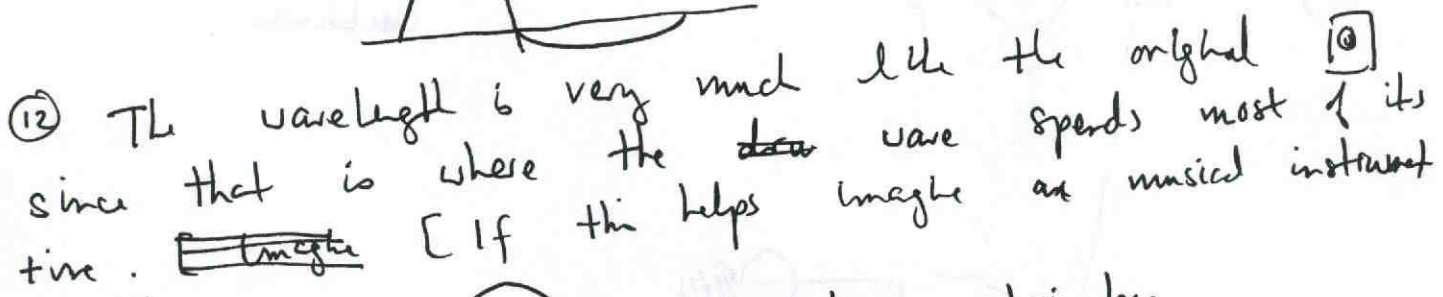 ⑫ The wavelength is very much like the original
since that is where the wave spends most of its
time. [If this helps imagine a musical instrument